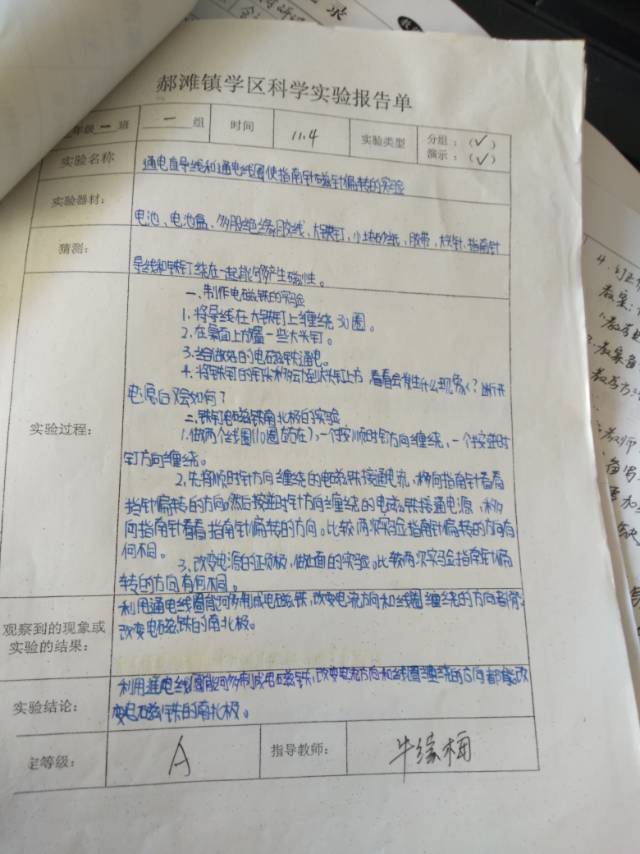 郝滩镇学区科学实验报告单
年级一班 一组 时间 11.4 实验类型 分组：（✓）
演示：（✓）
实验名称 通电直导线和通电线圈使指南针磁针偏转的实验
实验器材： 电池、电池盒、多股绝缘胶线、大铁钉、小块砂纸、胶带、大头针、指南针
猜测： 导线和铁钉绕在一起就可以产生磁性。
一、制作电磁铁的实验
1.将导线在大铁钉上缠绕30圈。
2.在桌面上放置一些大头钉。
3.给做好的电磁铁通电。
4.将铁钉的钉头移动到大头钉上方 看看会发生什么现象？断开
电原后又会如何？
实验过程：
二、铁钉电磁铁南北极的实验
1.做两个线圈（10圈左右），一个按顺时针方向缠绕，一个按逆时
针方向缠绕。
2.先将顺时针方向缠绕的电磁铁接通电流，移向指南针看看
指针偏转的方向，然后按逆时针方向缠绕的电磁铁接通电源，移
向指南针看看指南针偏转的方向。比较两次实验指南针偏转的方向有
何不同。
3.改变电源的正负极，做上面的实验。比较两次实验指南针偏
转的方向有何不同。
观察到的现象或
实验的结果：
利用通电线圈能可以制成电磁铁，改变电流方向和线圈缠绕的方向都能
改变电磁铁的南北极。
实验结论：
利用通电线圈能可以制成电磁铁，改变电流方向和线圈缠绕的方向都能改
变电磁铁的南北极。
定等级： A 指导教师：